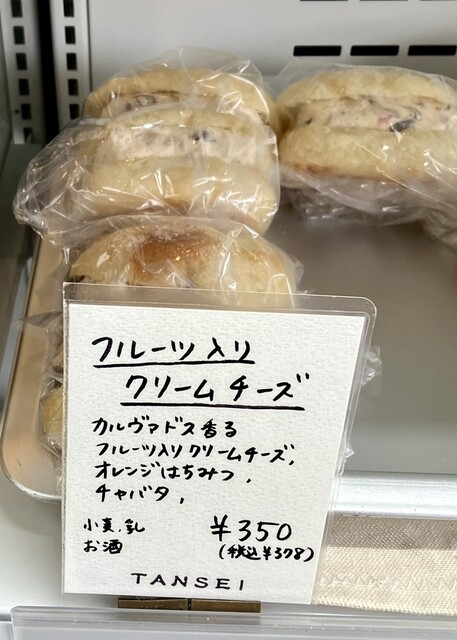 フルーツ入り
クリームチーズ
カルヴァドス香る
フルーツ入りクリームチーズ,
オレンジはちみつ,
チャバタ,
小麦,乳
お酒
¥350
(税込¥378)
TANSEI